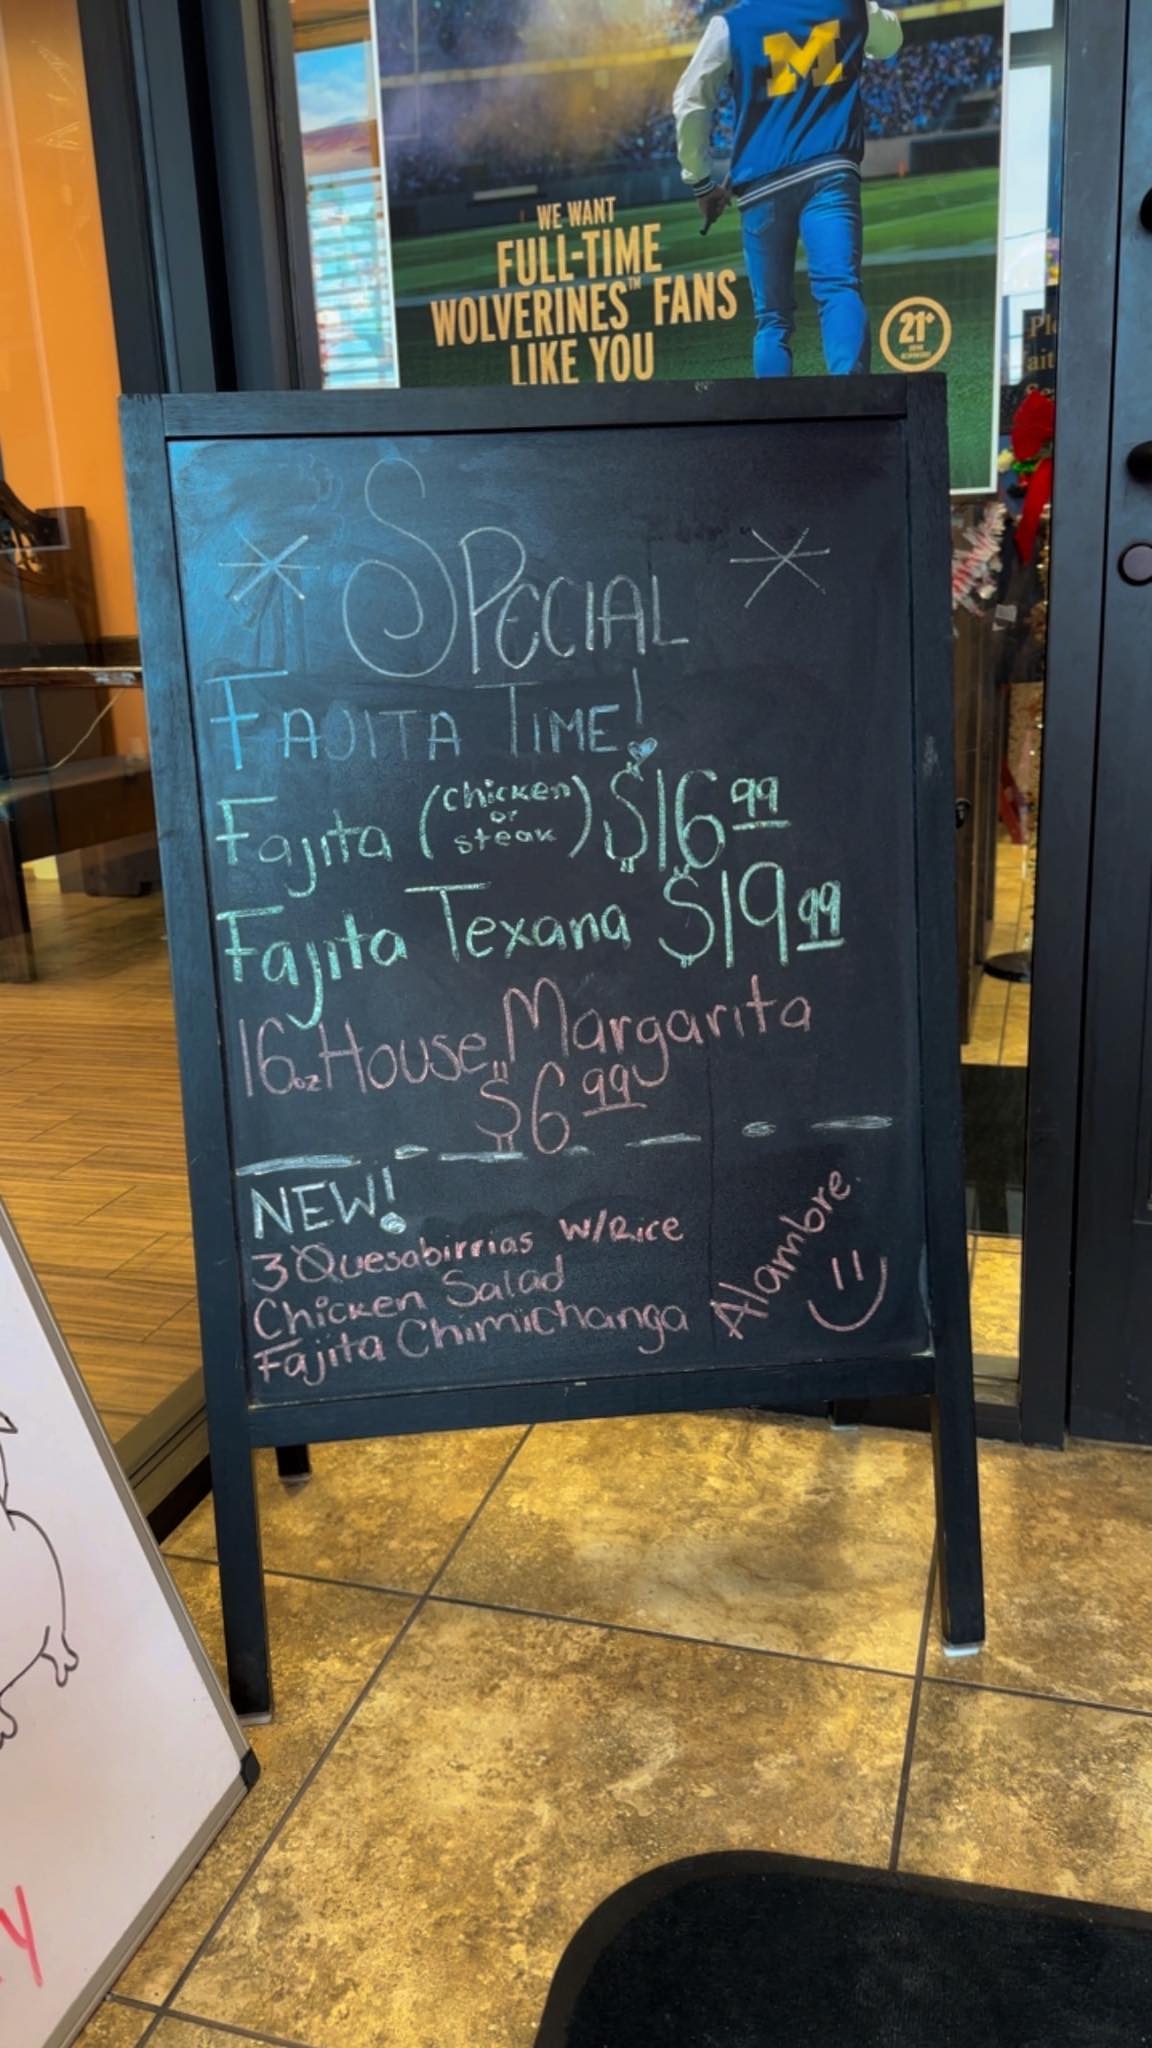 M
WE WANT
FULL-TIME
WOLVERINES™ FANS
LIKE YOU
21+
* SPECIAL *
FAJITA TIME!
Fajita (chicken or steak) $16.99
Fajita Texana $19.99
16oz House Margarita
$6.99
NEW!
3 Quesabirrias w/Rice
Chicken Salad
Fajita Chimichanga
Alambre
Y